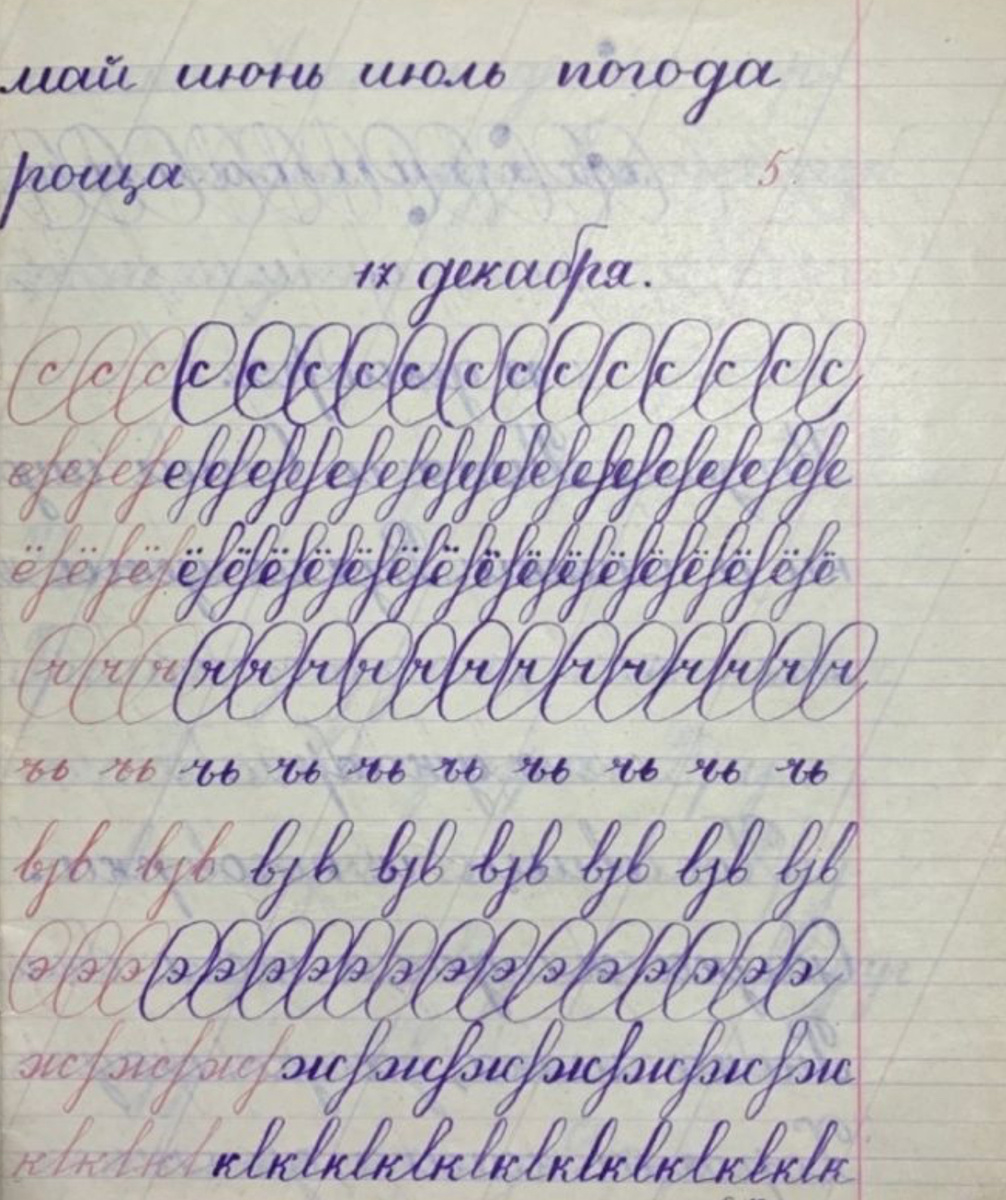 май июнь июль погода
роща 5
17 декабря.
с с с с с с с с с с с с с с с с
е е е е е е е е е е е е е е е е е
ё ё ё ё ё ё ё ё ё ё ё ё ё ё ё ё ё ё
ч ч ч ч ч ч ч ч ч ч ч ч ч ч ч
ъь ъь ъь ъь ъь ъь ъь ъь ъь ъь
вjв вjв вjв вjв вjв вjв вjв вjв
э э э э э э э э э э э э э э э э э
ж ж ж ж ж ж ж ж ж
к к к к к к к к к к к к к к к